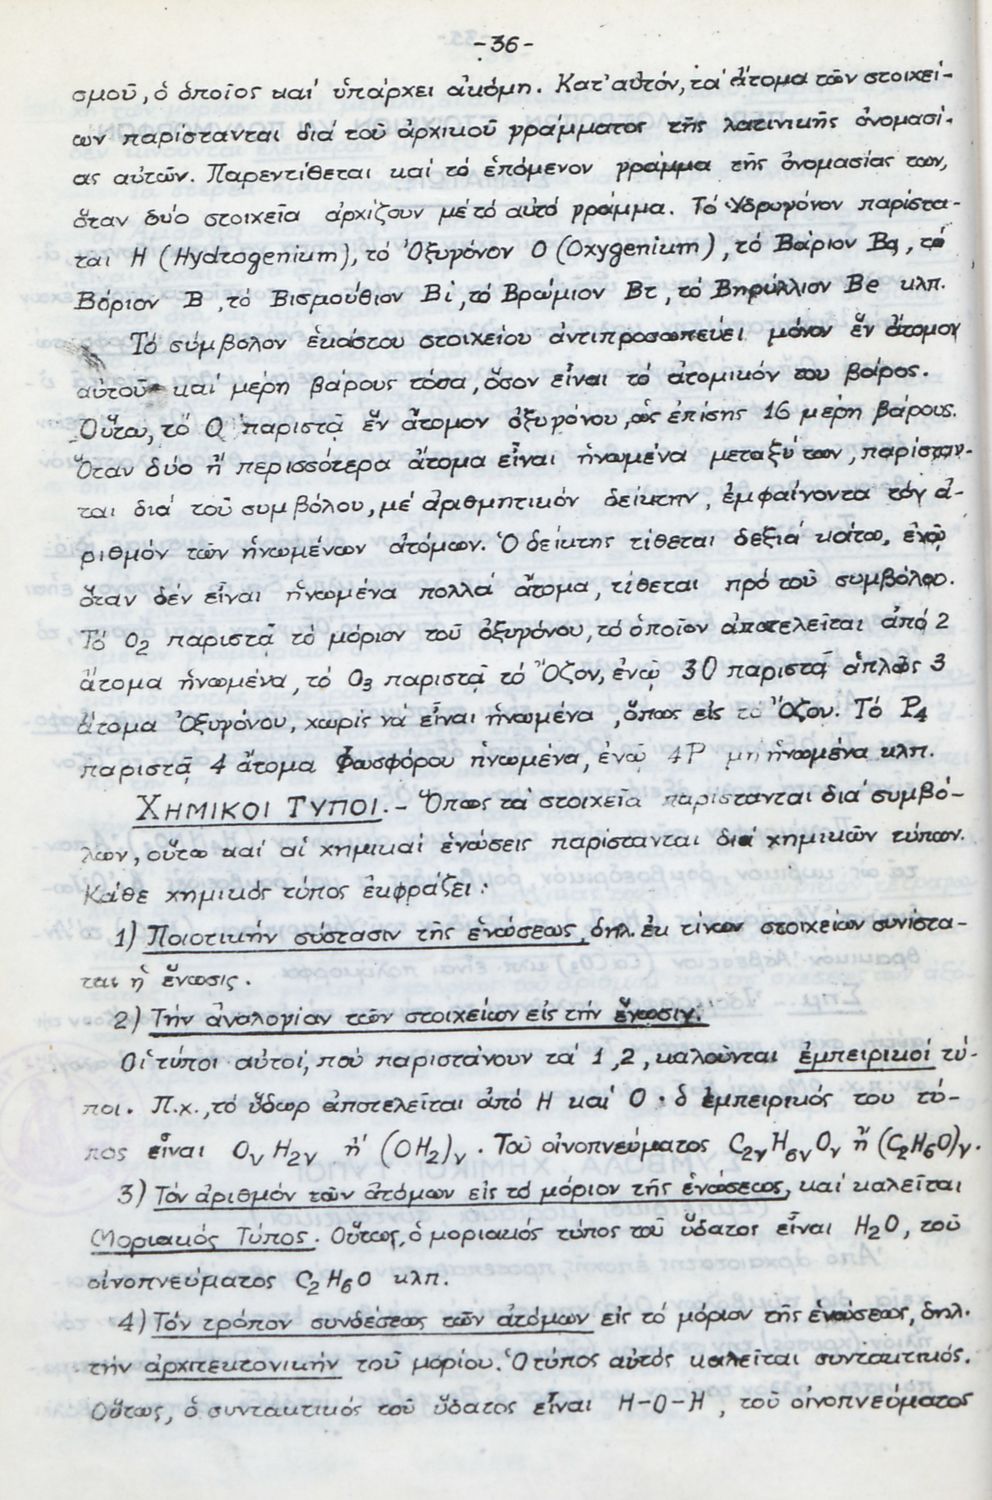 -36-
σμοῦ, ὁ ὁποῖος καί ὑπάρχει ἀκόμη. Κατ' αὐτόν, τά ἄτομα τῶν στοιχεί-
ων παρίστανται διά τοῦ ἀρχικοῦ γράμματος τῆς λατινικῆς ὀνομασί-
ας αὐτῶν. Παρεντίθεται καί τό ἑπόμενον γράμμα τῆς ὀνομασίας των,
ὅταν δύο στοιχεῖα ἀρχίζουν μέ τό αὐτό γράμμα. Τό Ὑδρογόνον παρίστα-
ται H (Hydrogenium), τό Ὀξυγόνον O (Oxygenium), τό Βάριον Ba, τό
Βόριον B, τό Βισμούθιον Bi, τό Βρώμιον Br, τό Βηρύλλιον Be κλπ.
Τό σύμβολον ἑκάστου στοιχείου ἀντιπροσωπεύει μόνον ἕν ἄτομον
αὐτοῦ καί μέρη βάρους τόσα, ὅσον εἶναι τό ἀτομικόν του βάρος.
Οὕτω, τό O παριστᾷ ἕν ἄτομον ὀξυγόνου, ὡς ἐπίσης 16 μέρη βάρους.
Ὅταν δύο ἤ περισσότερα ἄτομα εἶναι ἡνωμένα μεταξύ των, παρίσταν-
ται διά τοῦ συμβόλου, μέ ἀριθμητικόν δείκτην, ἐμφαίνοντα τόν ἀ-
ριθμόν τῶν ἡνωμένων ἀτόμων. Ὁ δείκτης τίθεται δεξιά κάτω, ἐνῷ
ὅταν δέν εἶναι ἡνωμένα πολλά ἄτομα, τίθεται πρό τοῦ συμβόλου.
Τό O₂ παριστᾷ τό μόριον τοῦ ὀξυγόνου, τό ὁποῖον ἀποτελεῖται ἀπό 2
ἄτομα ἡνωμένα, τό O₃ παριστᾷ τό Ὄζον, ἐνῷ 3O παριστᾷ ἁπλῶς 3
ἄτομα Ὀξυγόνου, χωρίς νά εἶναι ἡνωμένα, ὅπως εἰς τό Ὄζον. Τό P₄
παριστᾷ 4 ἄτομα Φωσφόρου ἡνωμένα, ἐνῷ 4P μή ἡνωμένα κλπ.
ΧΗΜΙΚΟΙ ΤΥΠΟΙ.- Ὅπως τά στοιχεῖα παρίστανται διά συμβό-
λων, οὕτω καί αἱ χημικαί ἑνώσεις παρίστανται διά χημικῶν τύπων.
Κάθε χημικός τύπος ἐκφράζει:
1) Ποιοτικήν σύστασιν τῆς ἑνώσεως, δηλ. ἐκ τίνων στοιχείων συνίστα-
ται ἡ ἕνωσις.
2) Τήν ἀναλογίαν τῶν στοιχείων εἰς τήν ἕνωσιν.
Οἱ τύποι αὐτοί, πού παριστάνουν τά 1, 2, καλοῦνται ἐμπειρικοί τύ-
ποι. Π.χ., τό ὕδωρ ἀποτελεῖται ἀπό H καί O· ὁ ἐμπειρικός του τύ-
πος εἶναι OᵥH₂ᵥ ἤ (OH₂)ᵥ. Τοῦ οἰνοπνεύματος C₂ᵥH₆ᵥOᵥ ἤ (C₂H₆O)ᵥ.
3) Τόν ἀριθμόν τῶν ἀτόμων εἰς τό μόριον τῆς ἑνώσεως, καί καλεῖται
Μοριακός Τύπος. Οὕτως, ὁ μοριακός τύπος τοῦ ὕδατος εἶναι H₂O, τοῦ
οἰνοπνεύματος C₂H₆O κλπ.
4) Τόν τρόπον συνδέσεως τῶν ἀτόμων εἰς τό μόριον τῆς ἑνώσεως, δηλ.
τήν ἀρχιτεκτονικήν τοῦ μορίου. Ὁ τύπος αὐτός καλεῖται συντακτικός.
Οὕτως, ὁ συντακτικός τοῦ ὕδατος εἶναι H-O-H, τοῦ οἰνοπνεύματος